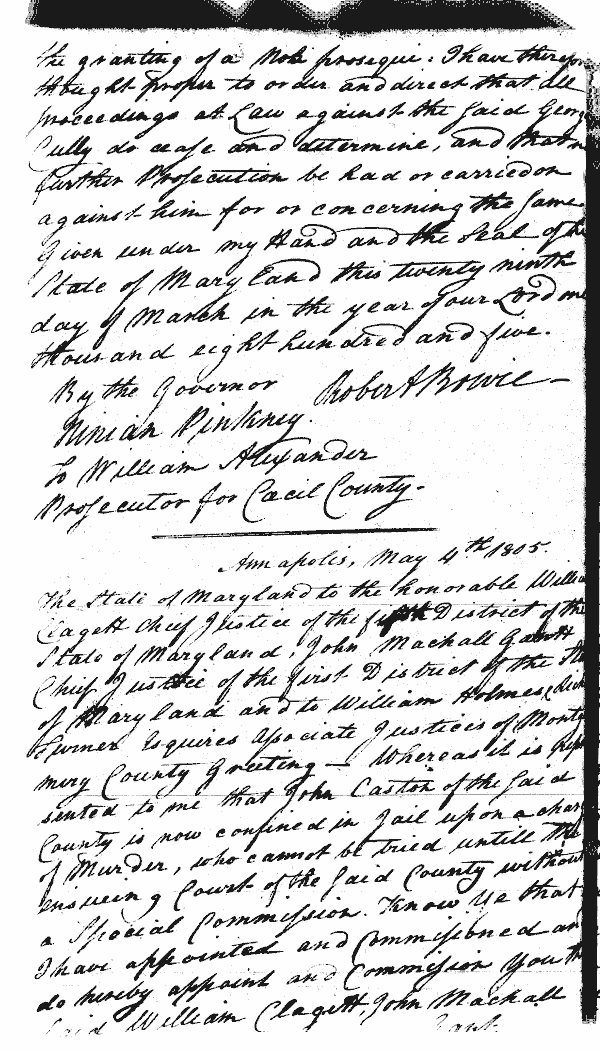 the granting of a Nole prosequi: I have therefor
thought proper to order and direct that all
proceedings at Law against the said Georg
Cully do cease and determine, and that n
further Prosecution be had or carried on
against him for or concerning the same.
Given under my Hand and the Seal of the
State of Maryland this twenty ninth
day of March in the year of our Lord one
thousand eight hundred and five.
By the Governor Robert Bowie –
Ninian Pinkney.
To William Alexander
Prosecutor for Cæcil County.
Annapolis, May 4th 1805.
The State of Maryland to the honorable Willia
Clagett Chief Justice of the fifth District of the
State of Maryland, John Mackall Gantt
Chief Justice of the first District of the Sta
of Maryland and to William Holmes & Rich
Turner Esquires Associate Justices of Montg
mery County Greeting — Whereas it is repre
sented to me that John Caston of the said
County is now confined in Jail upon a char
of Murder, who cannot be tried untill the
ensueing Court of the said County without
a Special Commission. Know Ye that
I have appointed and Commissioned and
do hereby appoint and Commission you th
said William Clagett, John Mackall
Gant.